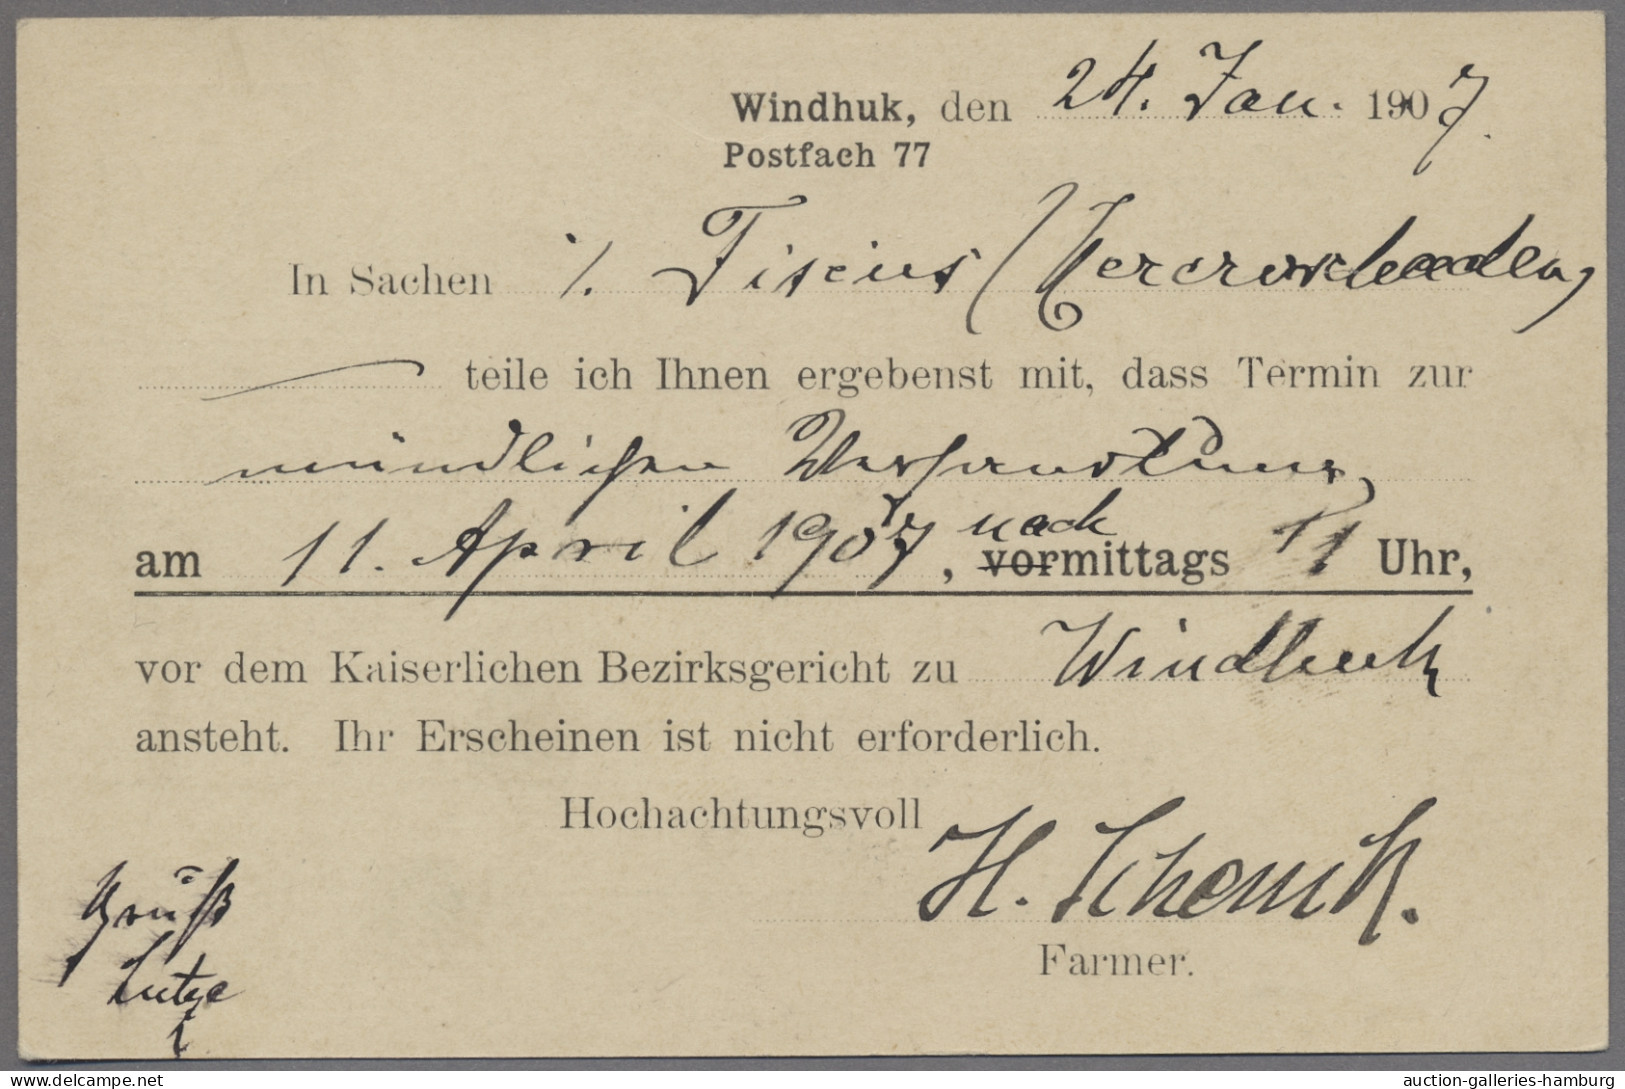 Windhuk, den 24. Jan. 1907.
Postfach 77
In Sachen ./. Fiscus /
teile ich Ihnen ergebenst mit, dass Termin zur
mündlichen Verhandlung
am 11. April 1907, nach vormittags 11 Uhr,
vor dem Kaiserlichen Bezirksgericht zu Windhuk
ansteht. Ihr Erscheinen ist nicht erforderlich.
Hochachtungsvoll
H. Schenk.
Farmer.
Gruß
auction-galleries-hamburg